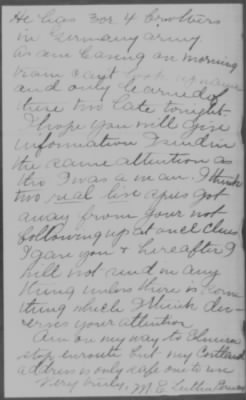 He has 3 or 4 brothers
in Germany army.
As am leaving on morning
train can't look up name
and only learned of
these two late tonight.
I hope you will give
information I send in
the same attention as
tho I was a man. I think
two real live spies got
away from your not
following up at once clues
I gave you & hereafter I
will not send in any
thing unless there is some
thing which I think de-
serves your attention
Am on my way to
stop enroute but my Cortland
address is only safe one to use
Very truly, M. E.